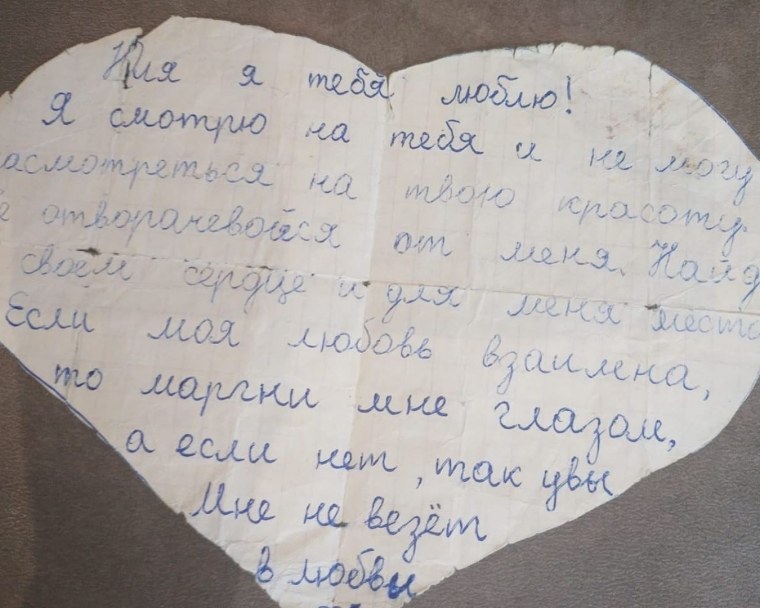 Ния я тебя люблю!
Я смотрю на тебя и не могу
асмотреться на твою красоту.
е отворачевойся от меня. Найд
своем сердце и для меня место
Если моя любовь взаилена,
то маргни мне глазом,
а если нет, так увы
Мне не везёт
в любвы